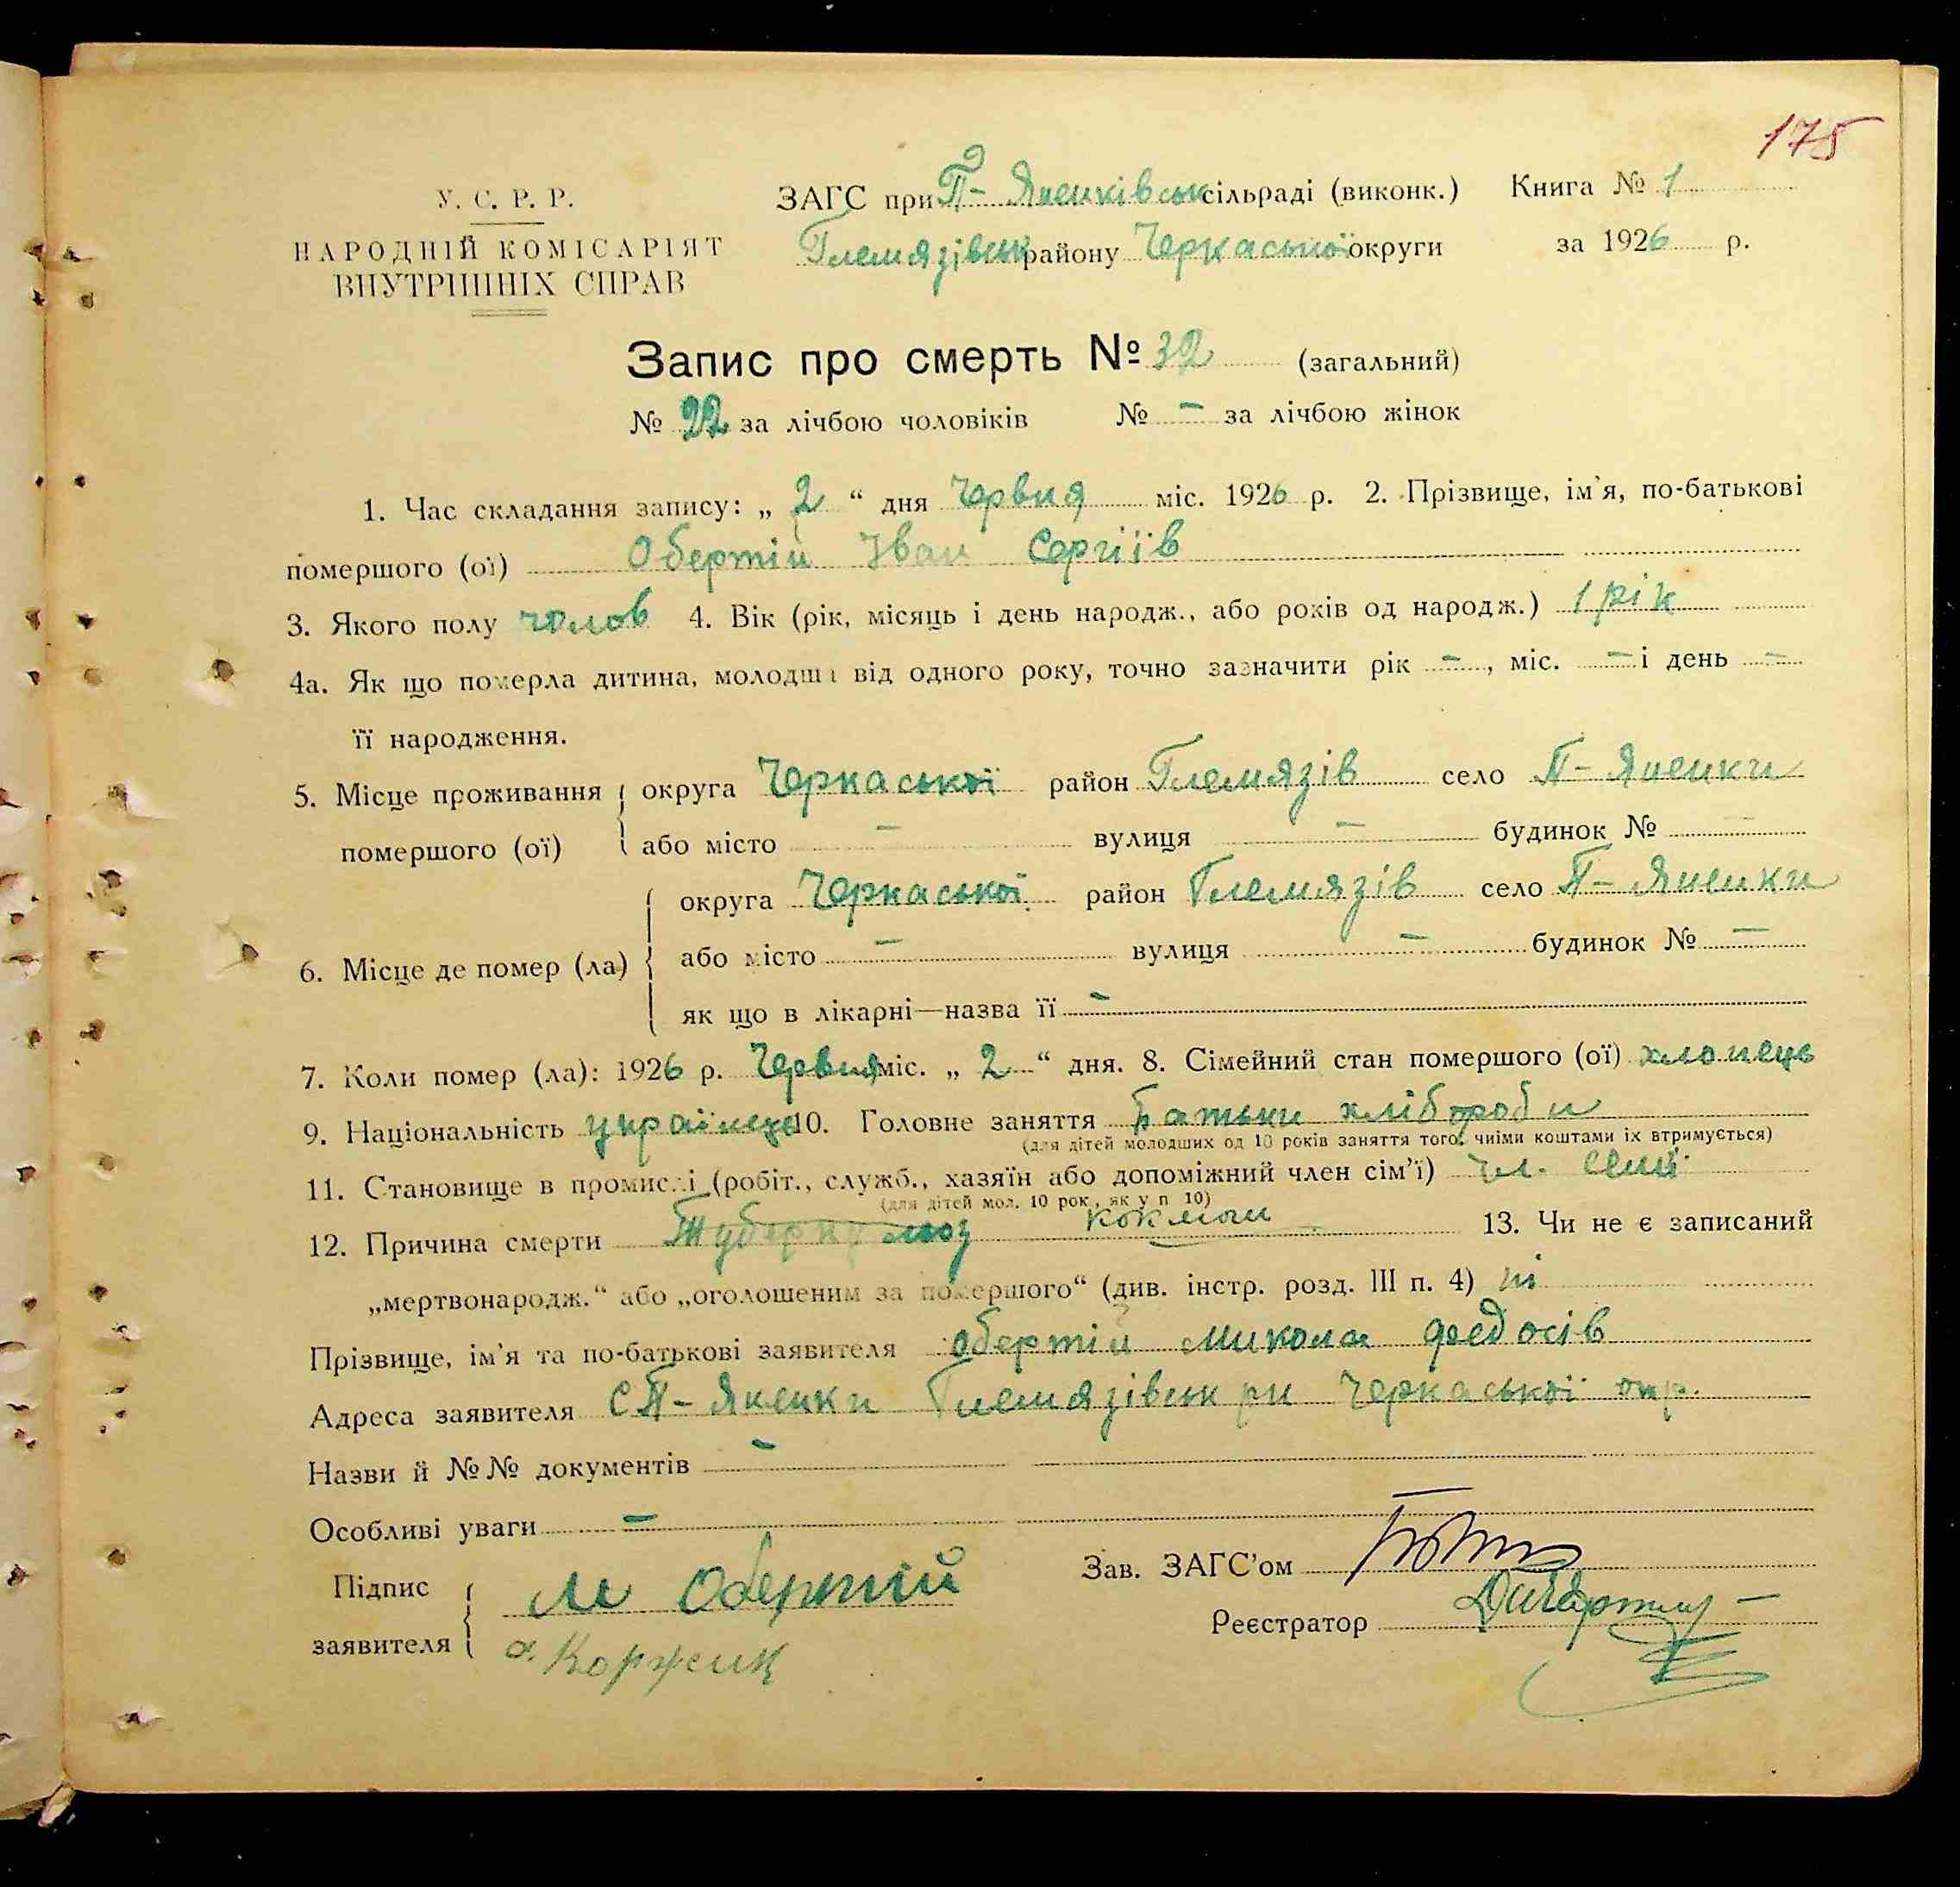 175
У. С. Р. Р.
НАРОДНІЙ КОМІСАРІЯТ
ВНУТРІШНІХ СПРАВ
ЗАГС при П- Яненківськ сільраді (виконк.) Книга № 1
Гельмязівськ району Черкаської округи за 1926 р.
Запис про смерть № 32 (загальний)
№ 22 за лічбою чоловіків № – за лічбою жінок
1. Час складання запису: „ 2 “ дня Червня міс. 1926 р. 2. Прізвище, ім'я, по-батькові
помершого (ої) Обертій Іван Сергіїв
3. Якого полу чолов 4. Вік (рік, місяць і день народж., або років од народж.) 1 рік
4а. Як що померла дитина, молодша від одного року, точно зазначити рік – , міс. – і день –
її народження.
5. Місце проживання округа Черкаської район Гельмязів село П- Яненки
помершого (ої) або місто – вулиця – будинок № –
округа Черкаської район Гельмязів село П- Яненки
6. Місце де помер (ла) або місто – вулиця – будинок № –
як що в лікарні—назва її –
7. Коли помер (ла): 1926 р. Червня міс. „ 2 “ дня. 8. Сімейний стан помершого (ої) хлопець
9. Національність українець 10. Головне заняття Батьки хлібороби
(для дітей молодших од 10 років заняття того, чиїми коштами їх втримується)
11. Становище в промислі (робіт., служб., хазяїн або допоміжний член сім'ї) чл. сімї
(для дітей мол. 10 рок., як у п 10)
12. Причина смерти Туберкульоз коклюш 13. Чи не є записаний
„мертвонародж.“ або „оголошеним за помершого“ (див. інстр. розд. III п. 4) ні
Прізвище, ім'я та по-батькові заявителя Обертій Микола Федосів
Адреса заявителя С П- Яненки Гельмязівськ рн Черкаської окр.
Назви й №№ документів –
Особливі уваги –
Підпис М Обертій Зав. ЗАГС'ом
заявителя Коржик Реєстратор